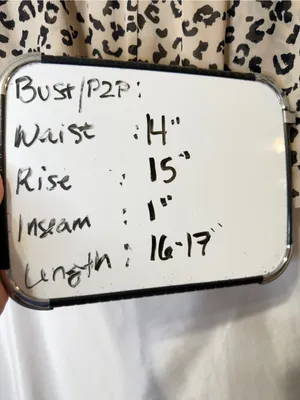 Bust/P2P:
Waist : 14"
Rise : 15"
Inseam : 1"
Length : 16-17"